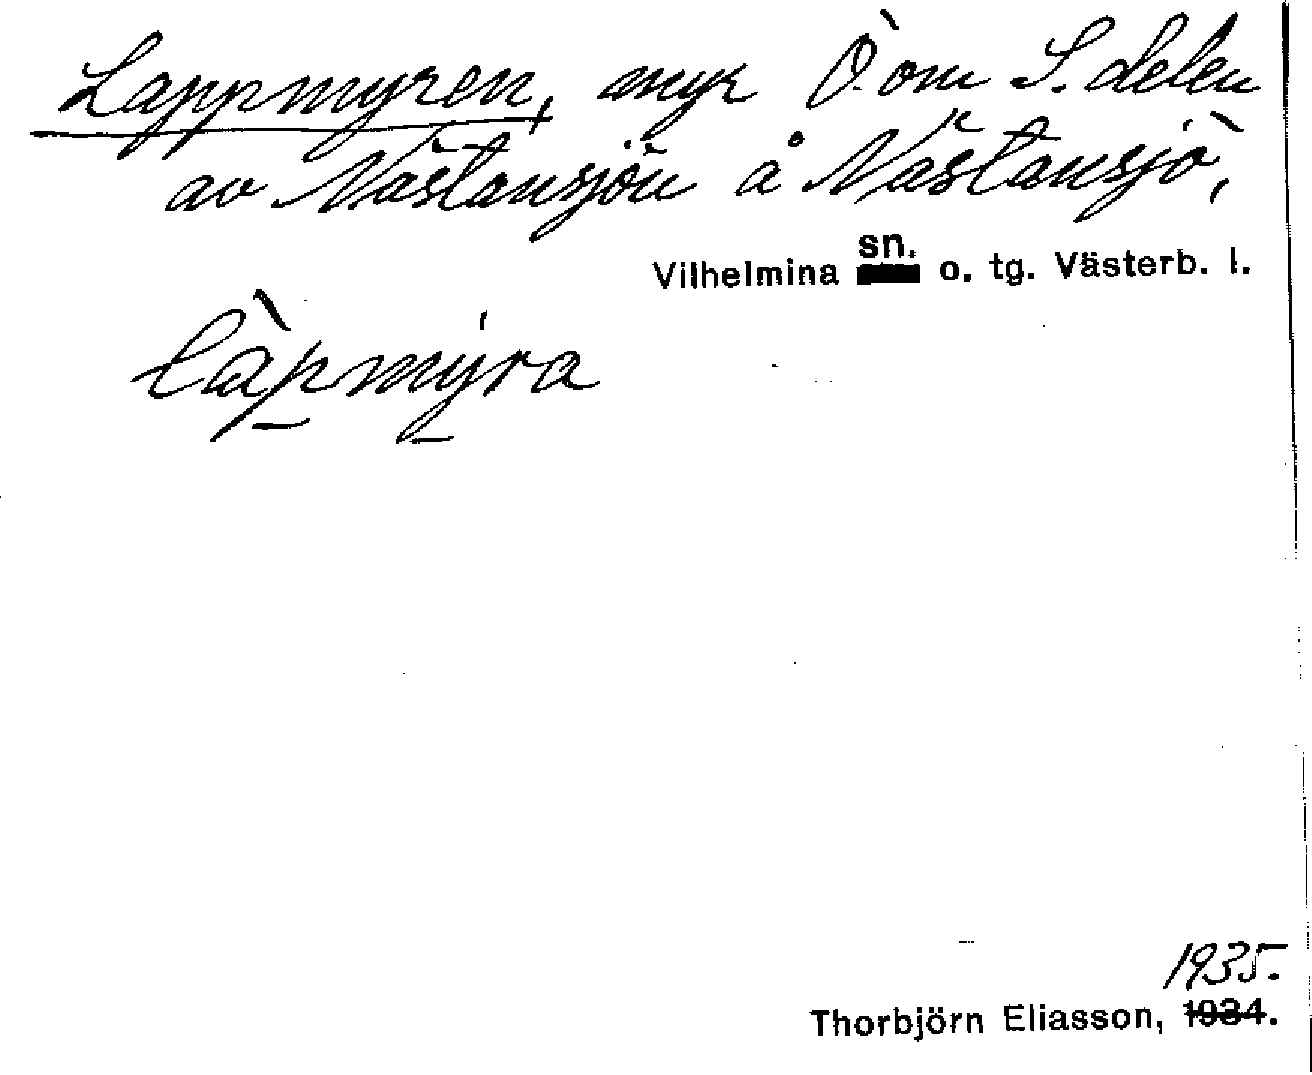 Lappmyren, myr Ö. om S. delen
av Nästansjön å Nästansjö,
Vilhelmina sn. o. tg. Västerb. l.
làpmýra
1935.
Thorbjörn Eliasson, 1934.